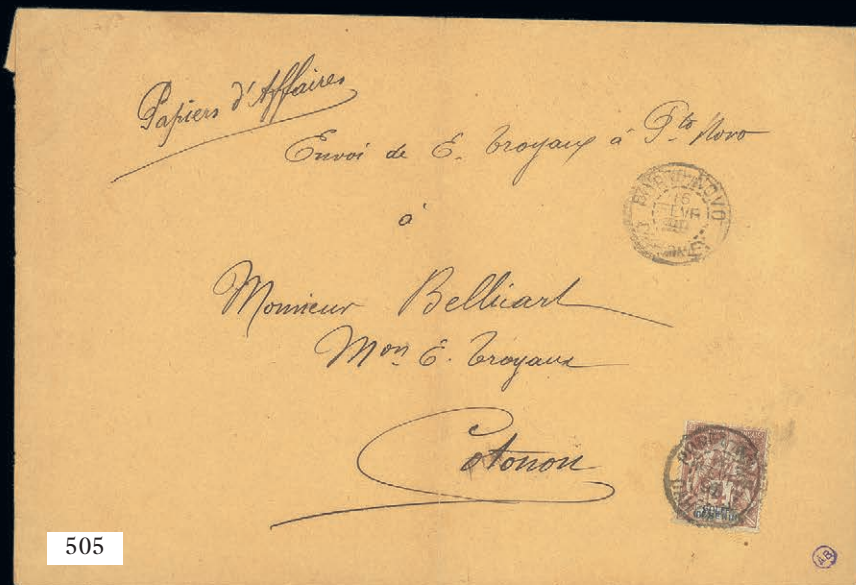 Papiers d'Affaires
Envoi de E. Troyaux à Pto Novo
PORTO-NOVO
16
à
Monsieur Belliart
Mon E. Troyaux
Cotonou
505